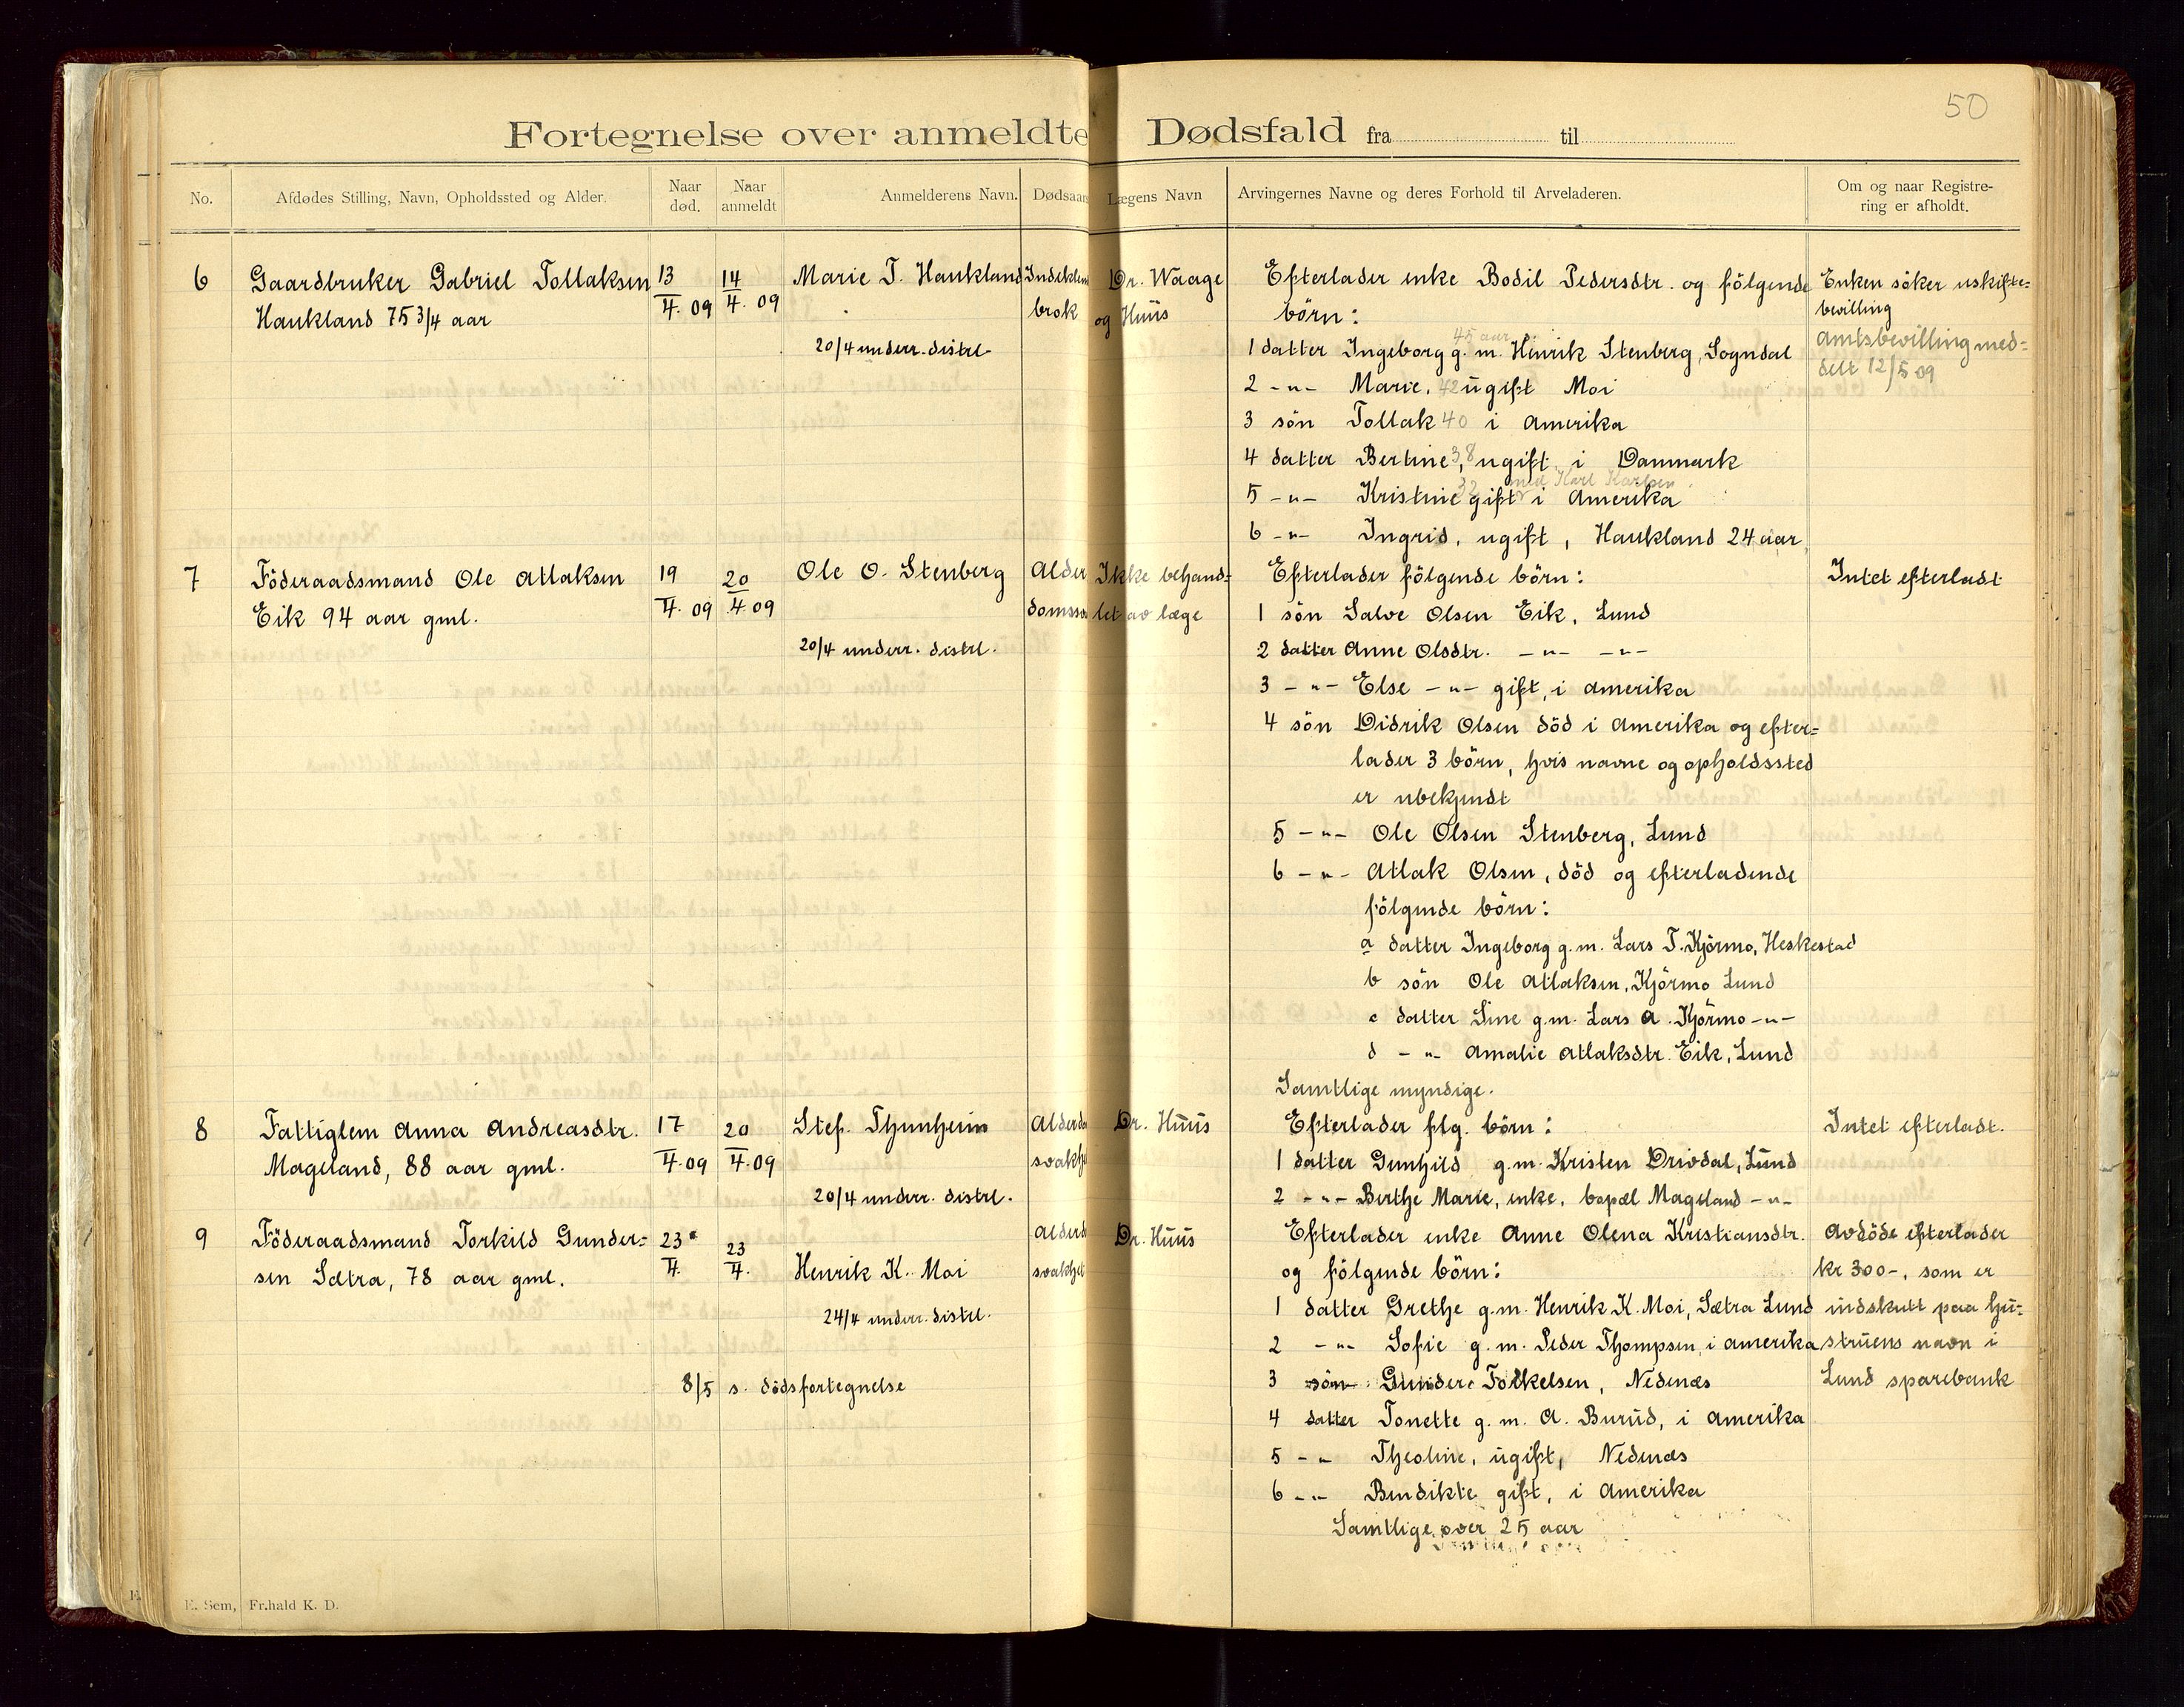 50
Fortegnelse over anmeldte Dødsfald fra til
No. Afdødes Stilling, Navn, Opholdssted og Alder. Naar død. Naar anmeldt Anmelderens Navn. Dødsaar Lægens Navn Arvingernes Navne og deres Forhold til Arveladeren. Om og naar Registrering er afholdt.
6 Gaardbruker Gabriel Tollaksen 13 14 Marie T. Haukland Indeklem Dr. Waage Efterlader enke Bodil Pedersdtr. og fölgende Enken söker uskifte=
Haukland 75 3/4 aar 4. 09 4. 09 brok og Huus börn: bevilling
20/4 underr. distrl. 1 datter Ingeborg 45 aar g. m. Henrik Stenberg, Sogndal amtsbevilling med=
2 -"- Marie, 42 ugift Moi delt 12/5 09
3 sön Tollak 40 i Amerika
4 datter Bertine 38, ugift i Danmark
5 -"- Kristine 32 gift med Karl Karlsen i Amerika
6 -"- Ingrid, ugift, Haukland 24 aar
7 Föderaadsmand Ole Atlaksen 19 20 Ole O. Stenberg Alder Ikke behand- Efterlader fölgende börn: Intet efterladt
Eik 94 aar gml. 4. 09 4. 09 domssv let av læge 1 sön Salve Olsen Eik, Lund
20/4 underr. distrl. 2 datter Anne Olsdtr. -"- -"-
3 -"- Else -"- gift, i Amerika
4 sön Didrik Olsen död i Amerika og efter=
lader 3 börn, hvis navne og opholdssted
er ubekjendt
5 -"- Ole Olsen Stenberg, Lund
6 -"- Atlak Olsen, död og efterladende
fölgende börn:
a datter Ingeborg g.m. Lars T. Kjörmo, Heskestad
b sön Ole Atlaksen, Kjörmo Lund
c datter Sine g.m. Lars A. Kjörmo -"-
d -"- Amalie Atlaksdtr. Eik, Lund
Samtlige myndige.
8 Fattiglem Anna Andreasdtr. 17 20 Stef. Thunheim Alderdo Dr. Huus Efterlader flg. börn: Intet efterladt.
Mageland, 88 aar gml. 4. 09 4. 09 svakhe 1 datter Gunhild g.m. Kristen Drivdal, Lund
20/4 underr. distrl. 2 -"- Berthe Marie, enke, bopæl Mageland -"-
9 Föderaadsmand Torkild Gunder= 23 23 Alderd Dr. Huus Efterlader enke Anne Olena Kristiansdtr. Avdöde efterlader
sen Sætra, 78 aar gml. 4. 4. Henrik K. Moi svakhet og fölgende börn: kr 300-, som er
24/4 underr. distrl. 1 datter Grethe g.m. Henrik K. Moi, Sætra Lund indskutt paa hu=
2 -"- Sofie g.m. Peder Thompsen, i Amerika struens navn i
8/5 s. dödsfortegnelse 3 sön Gunder Torkelsen, Nedenæs Lund sparebank
4 datter Tonette g.m. A. Burud, i Amerika
5 -"- Theoline, ugift, Nedenæs
6 -"- Bendikte gift, i Amerika
Samtlige over 25 aar
E. Sem, Fr.hald K. D.